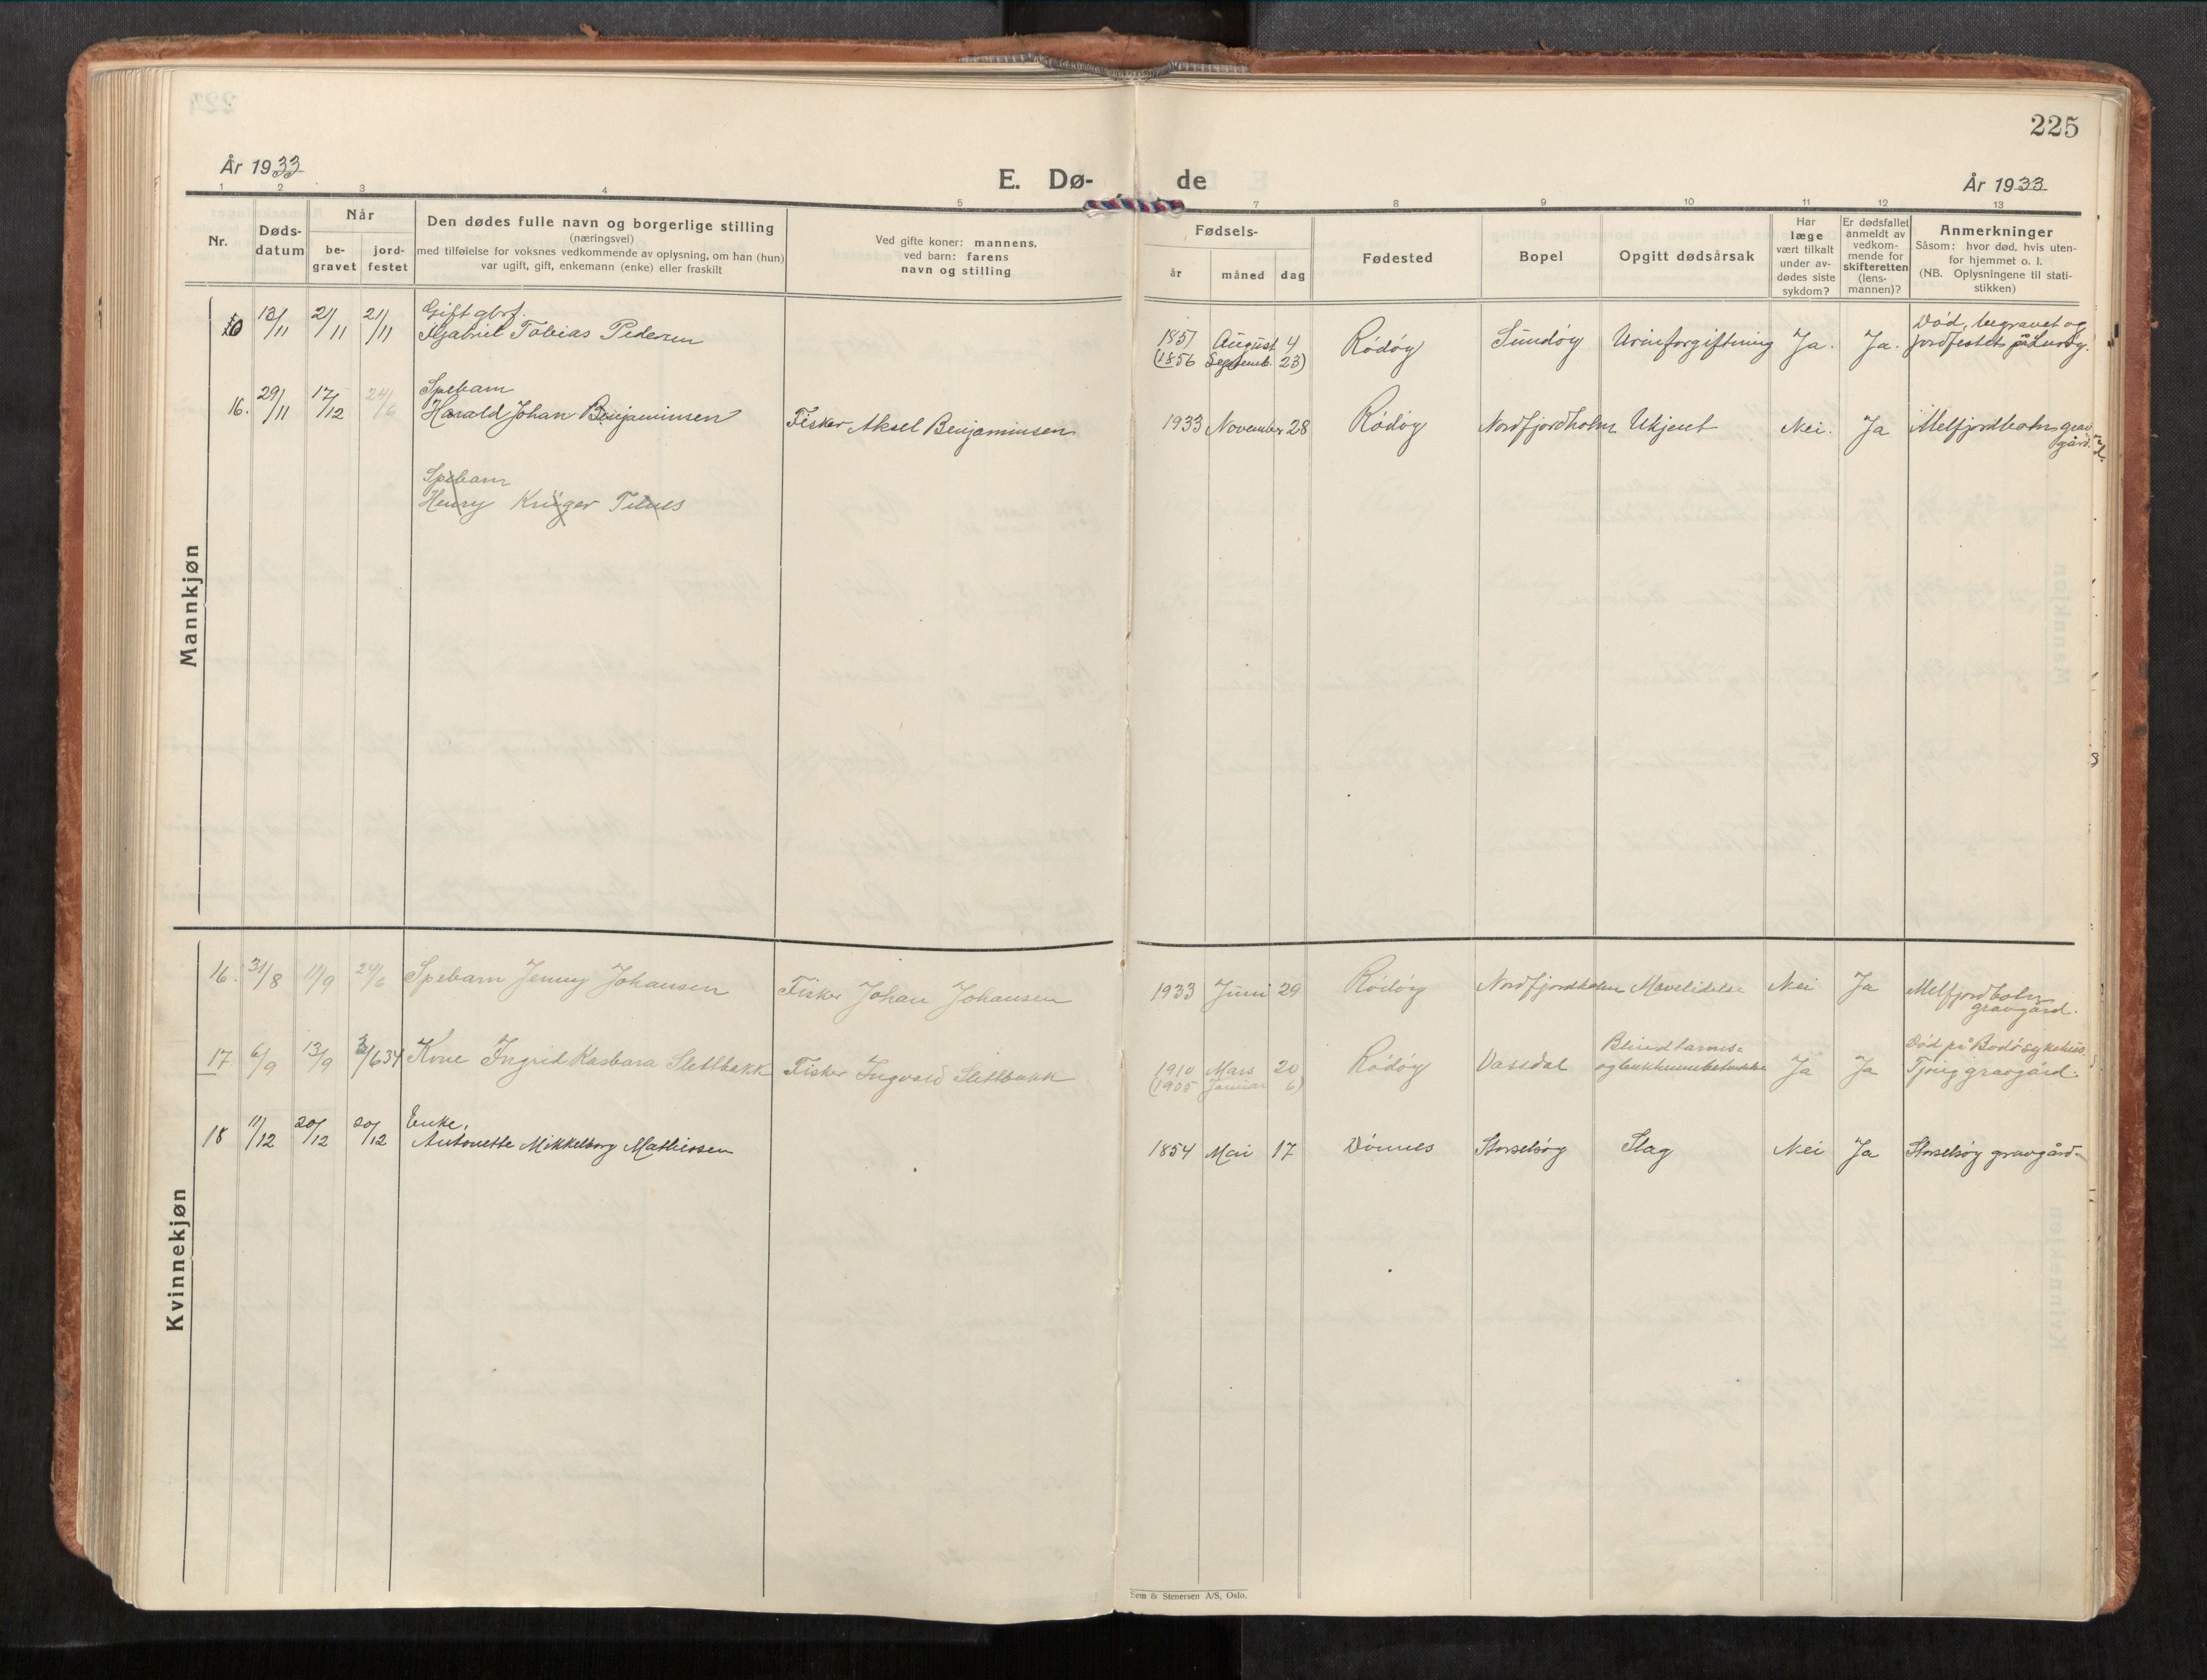 225
År 1933
E. Dø-
de
År 1933
1 2 3 4 5 7 8 9 10 11 12 13
Nr.
Døds-
datum
Når
be-
gravet
jord-
festet
Den dødes fulle navn og borgerlige stilling
(næringsvei)
med tilføielse for voksnes vedkommende av oplysning, om han (hun)
var ugift, gift, enkemann (enke) eller fraskilt
Ved gifte koner: mannens,
ved barn: farens
navn og stilling
Fødsels-
år
måned
dag
Fødested
Bopel
Opgitt dødsårsak
Har
læge
vært tilkalt
under av-
dødes siste
sykdom?
Er dødsfallet
anmeldt av
vedkom-
mende for
skifteretten
(lens-
mannen)?
Anmerkninger
Såsom: hvor død, hvis uten-
for hjemmet o. l.
(NB. Oplysningene til stati-
stikken)
Mannkjøn
13/11 21/11 21/11 Gift gbrf. Tobias Pedersen 1857 August 4 Rödöy Sundöy Urinforgiftning Ja. Ja. Död, begravet og
(1856 Septemb. 23) jordfestet på Luröy.
16. 29/11 17/12 24/6 Spebarn
Harald Johan Benjaminsen Fisker Aksel Benjaminsen 1933 November 28 Rödöy Nordfjordholm Ukjent Nei. Ja Melfjordbotn grav
gård.
Spebarn
Henry Krüger
Kvinnekjøn
16. 31/8 11/9 24/6 Spebarn Jenny Johansen Fisker Johan Johansen 1933 Juni 29 Rödöy Nordfjordholm Mavelidelse Nei Ja Melfjordbotn
gravgård.
17 6/9 13/9 3/6 34 Kone Ingrid Kasbara Slettbakk Fisker Ingvald Slettbakk 1910 Mars 20 Rödöy Vassdal Blindtarms-
og bukhinnebetendelse Ja Ja Död på Bodö sykehus.
(1905 Januar 6) Tjong gravgård.
18 11/12 20/12 20/12 Enke,
Antonette Mikkelborg Mathiesen 1854 Mai 17 Dönnes Storselsöy Slag Nei Ja Storselsöy gravgård.
Sem & Stenersen A/S, Oslo.